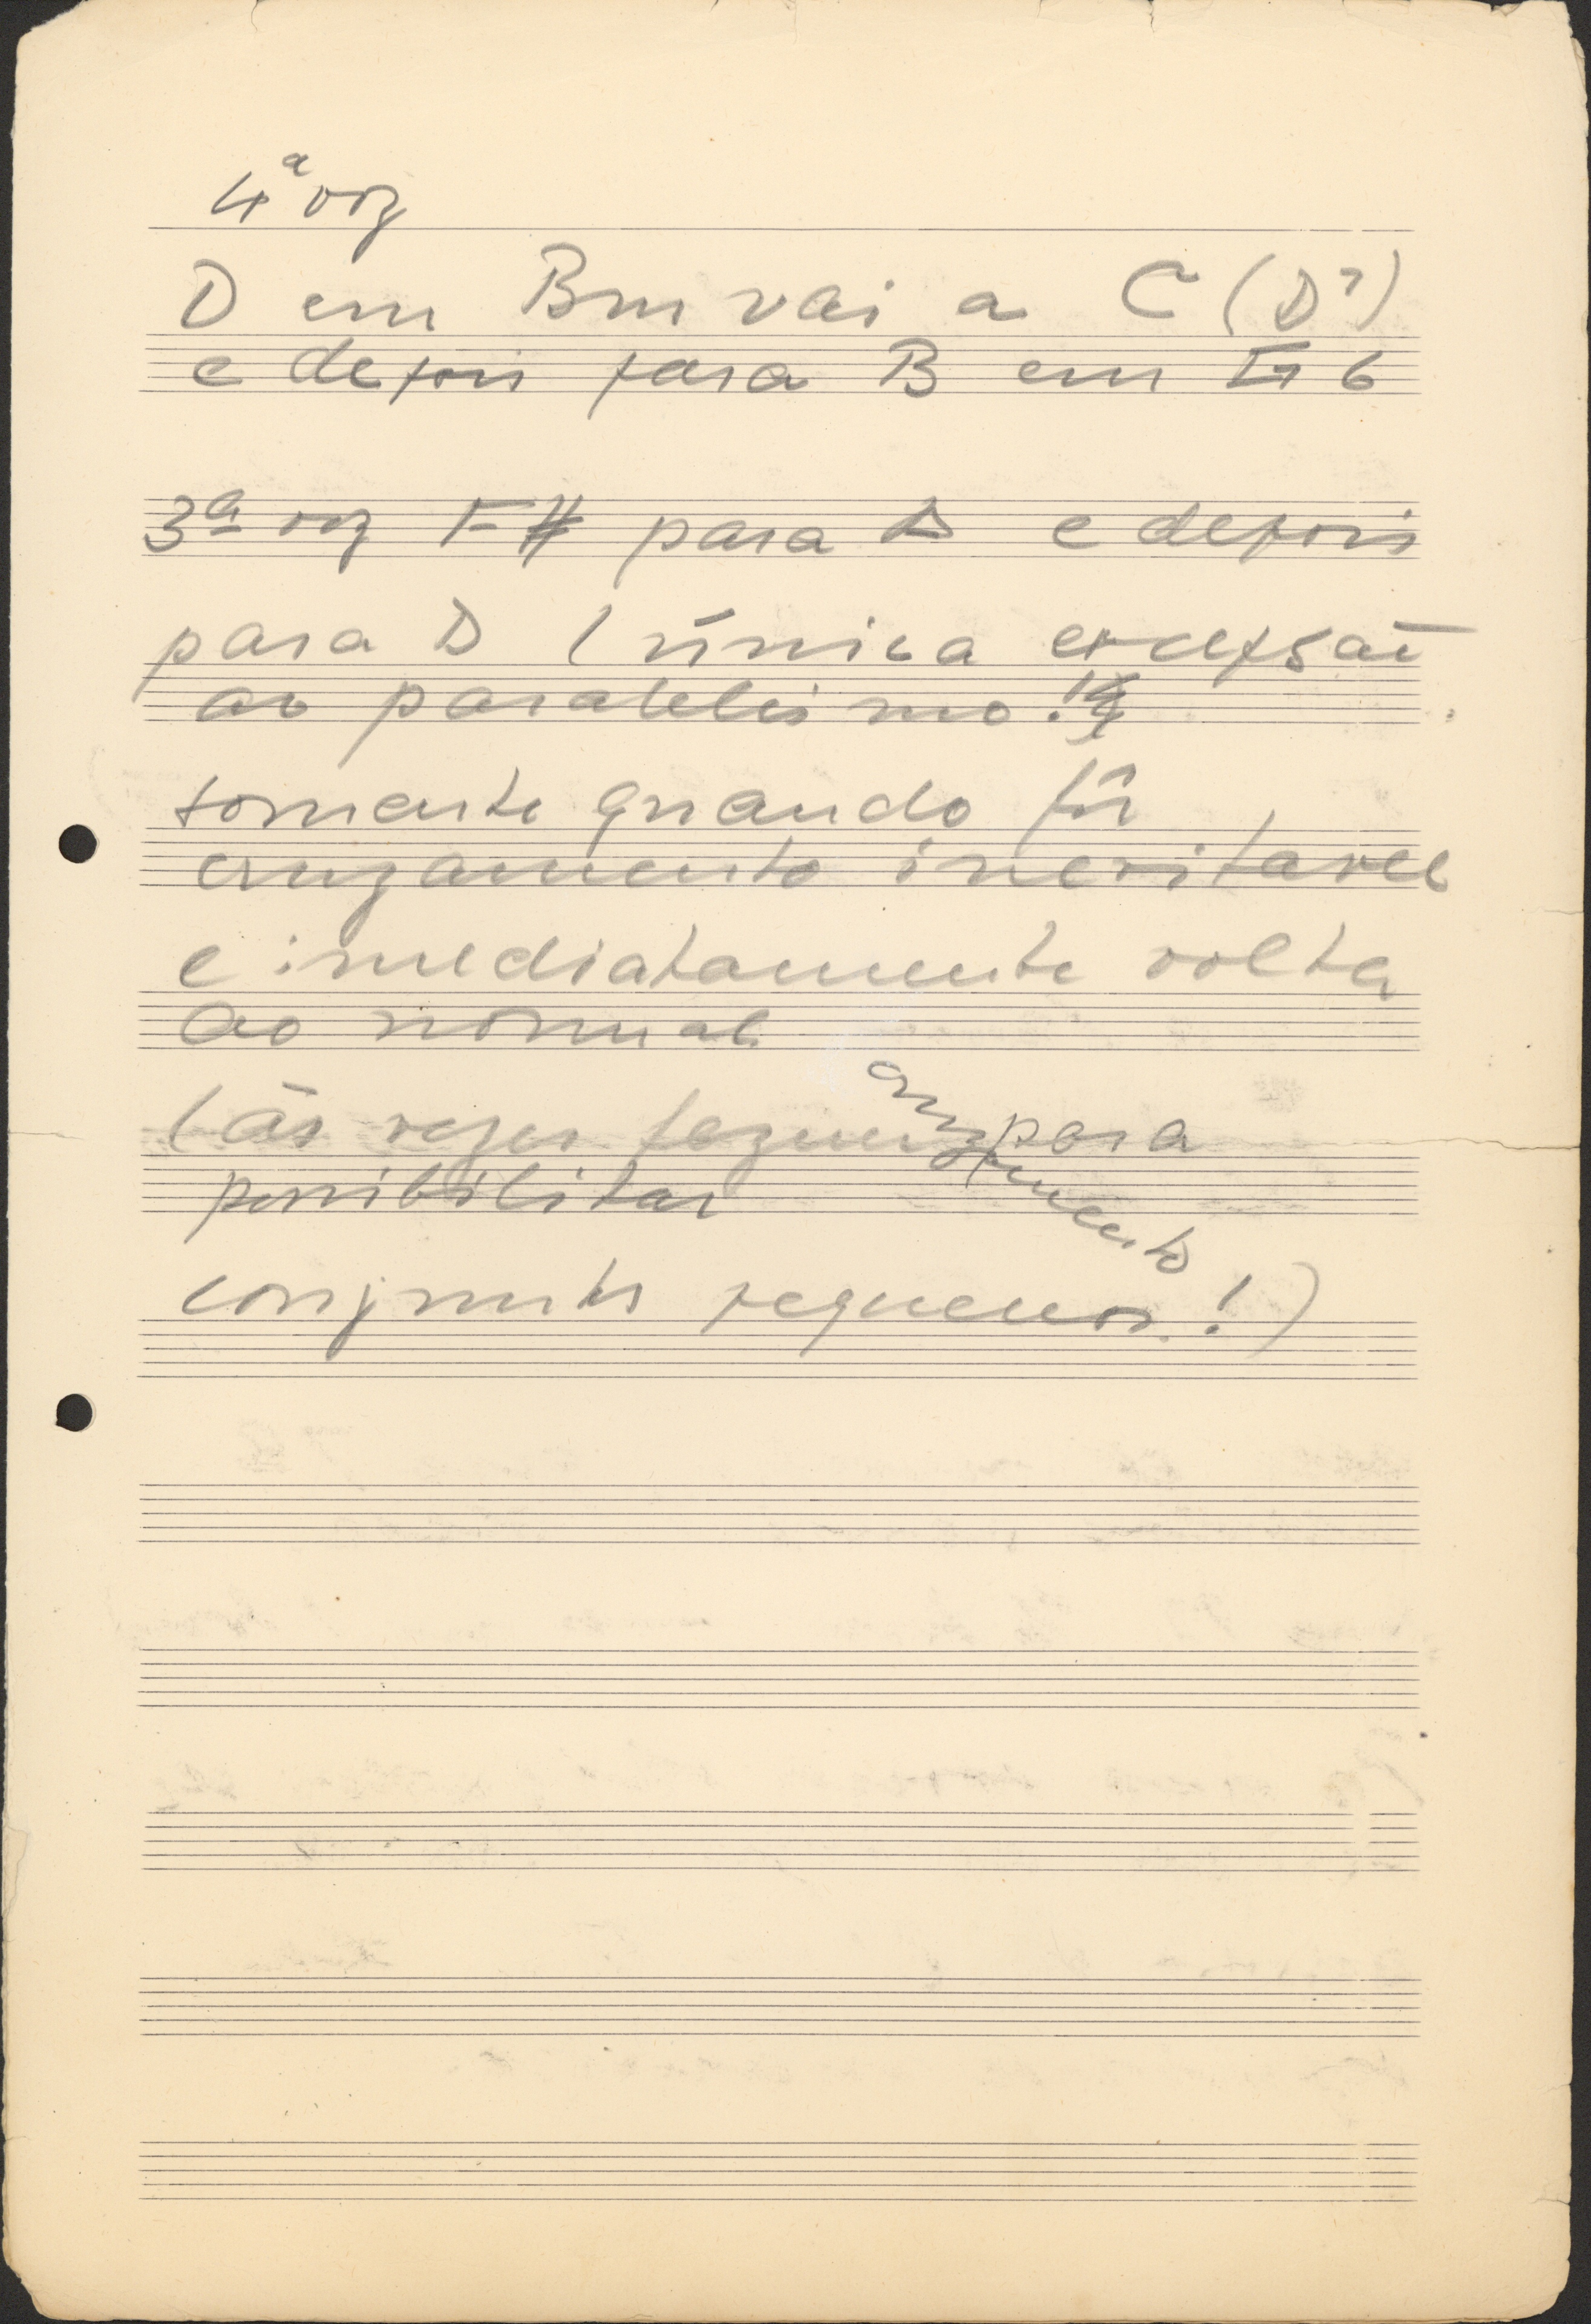 4ª voz
D em Bm vai a C (D7)
e depois para B em G6
3ª voz F# para D e depois
para D (única excepsão
ao paralelismo!)
somente quando fôr
cruzamento inevitavel
e imediatamente volta
ao normal.
(ás vezes fazem cruzamento para
possibilitar
conjuntos pequenos!)